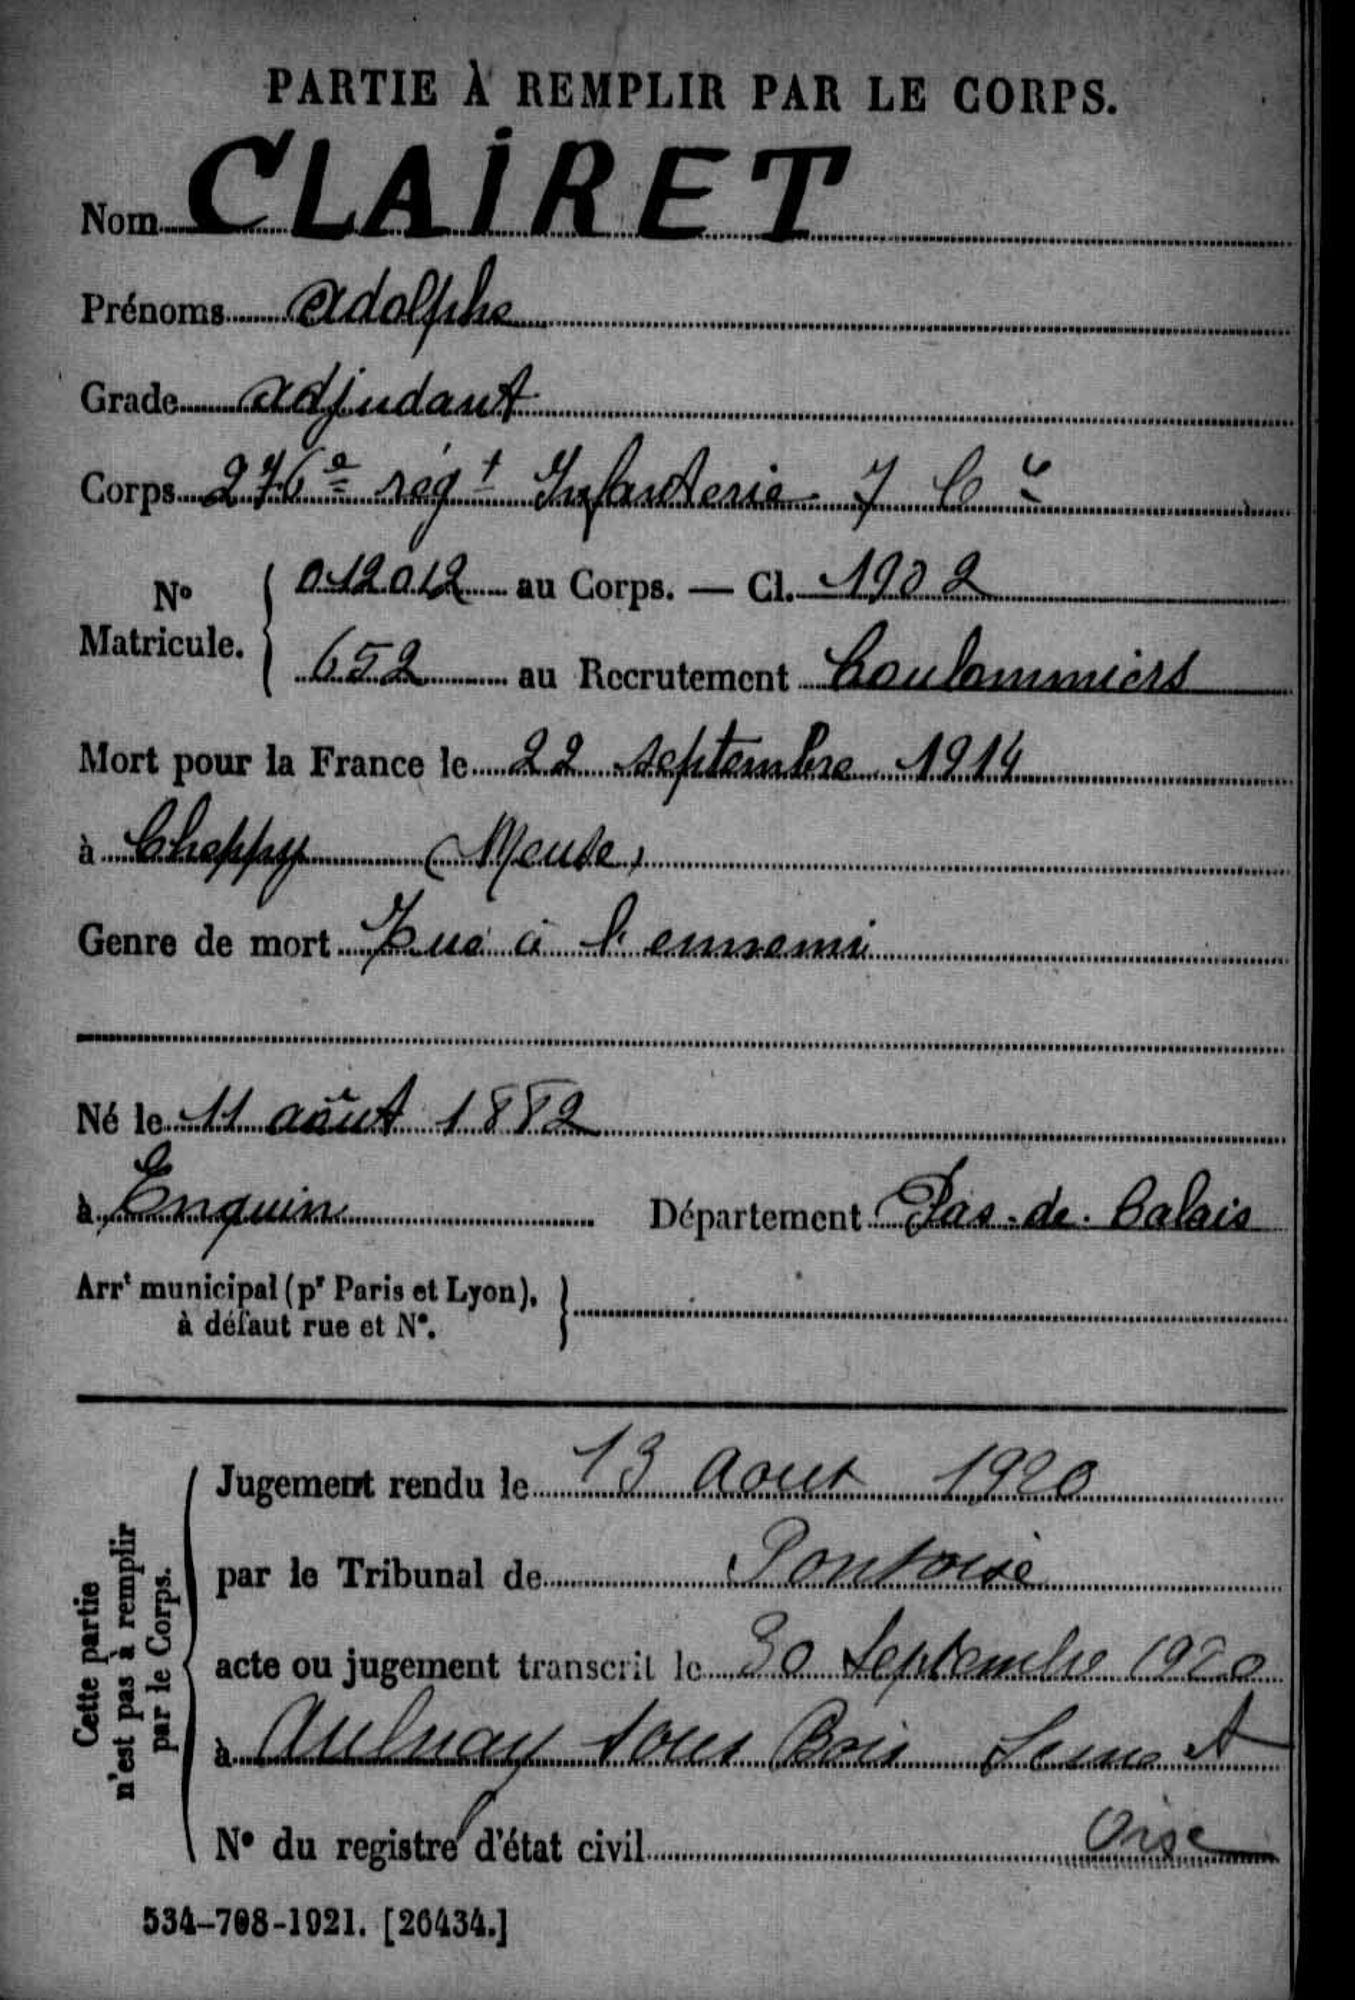 PARTIE À REMPLIR PAR LE CORPS.
Nom CLAIRET
Prénoms Adolphe
Grade adjudant
Corps 276e régt Infanterie 7 Cie
No Matricule. { 012012 au Corps. — Cl. 1902
652 au Recrutement Coulommiers
Mort pour la France le 22 septembre 1914
à Cheppy (Meuse)
Genre de mort Tué à l'ennemi
Né le 11 août 1882
à Enquin Département Pas-de-Calais
Arrt municipal (pr Paris et Lyon), }
à défaut rue et No.
Cette partie
n'est pas à remplir
par le Corps.
Jugement rendu le 13 Aout 1920
par le Tribunal de Pontoise
acte ou jugement transcrit le 30 Septembre 1920
à Aulnay sous Bois Seine et
No du registre d'état civil Oise
534-708-1921. [26434.]